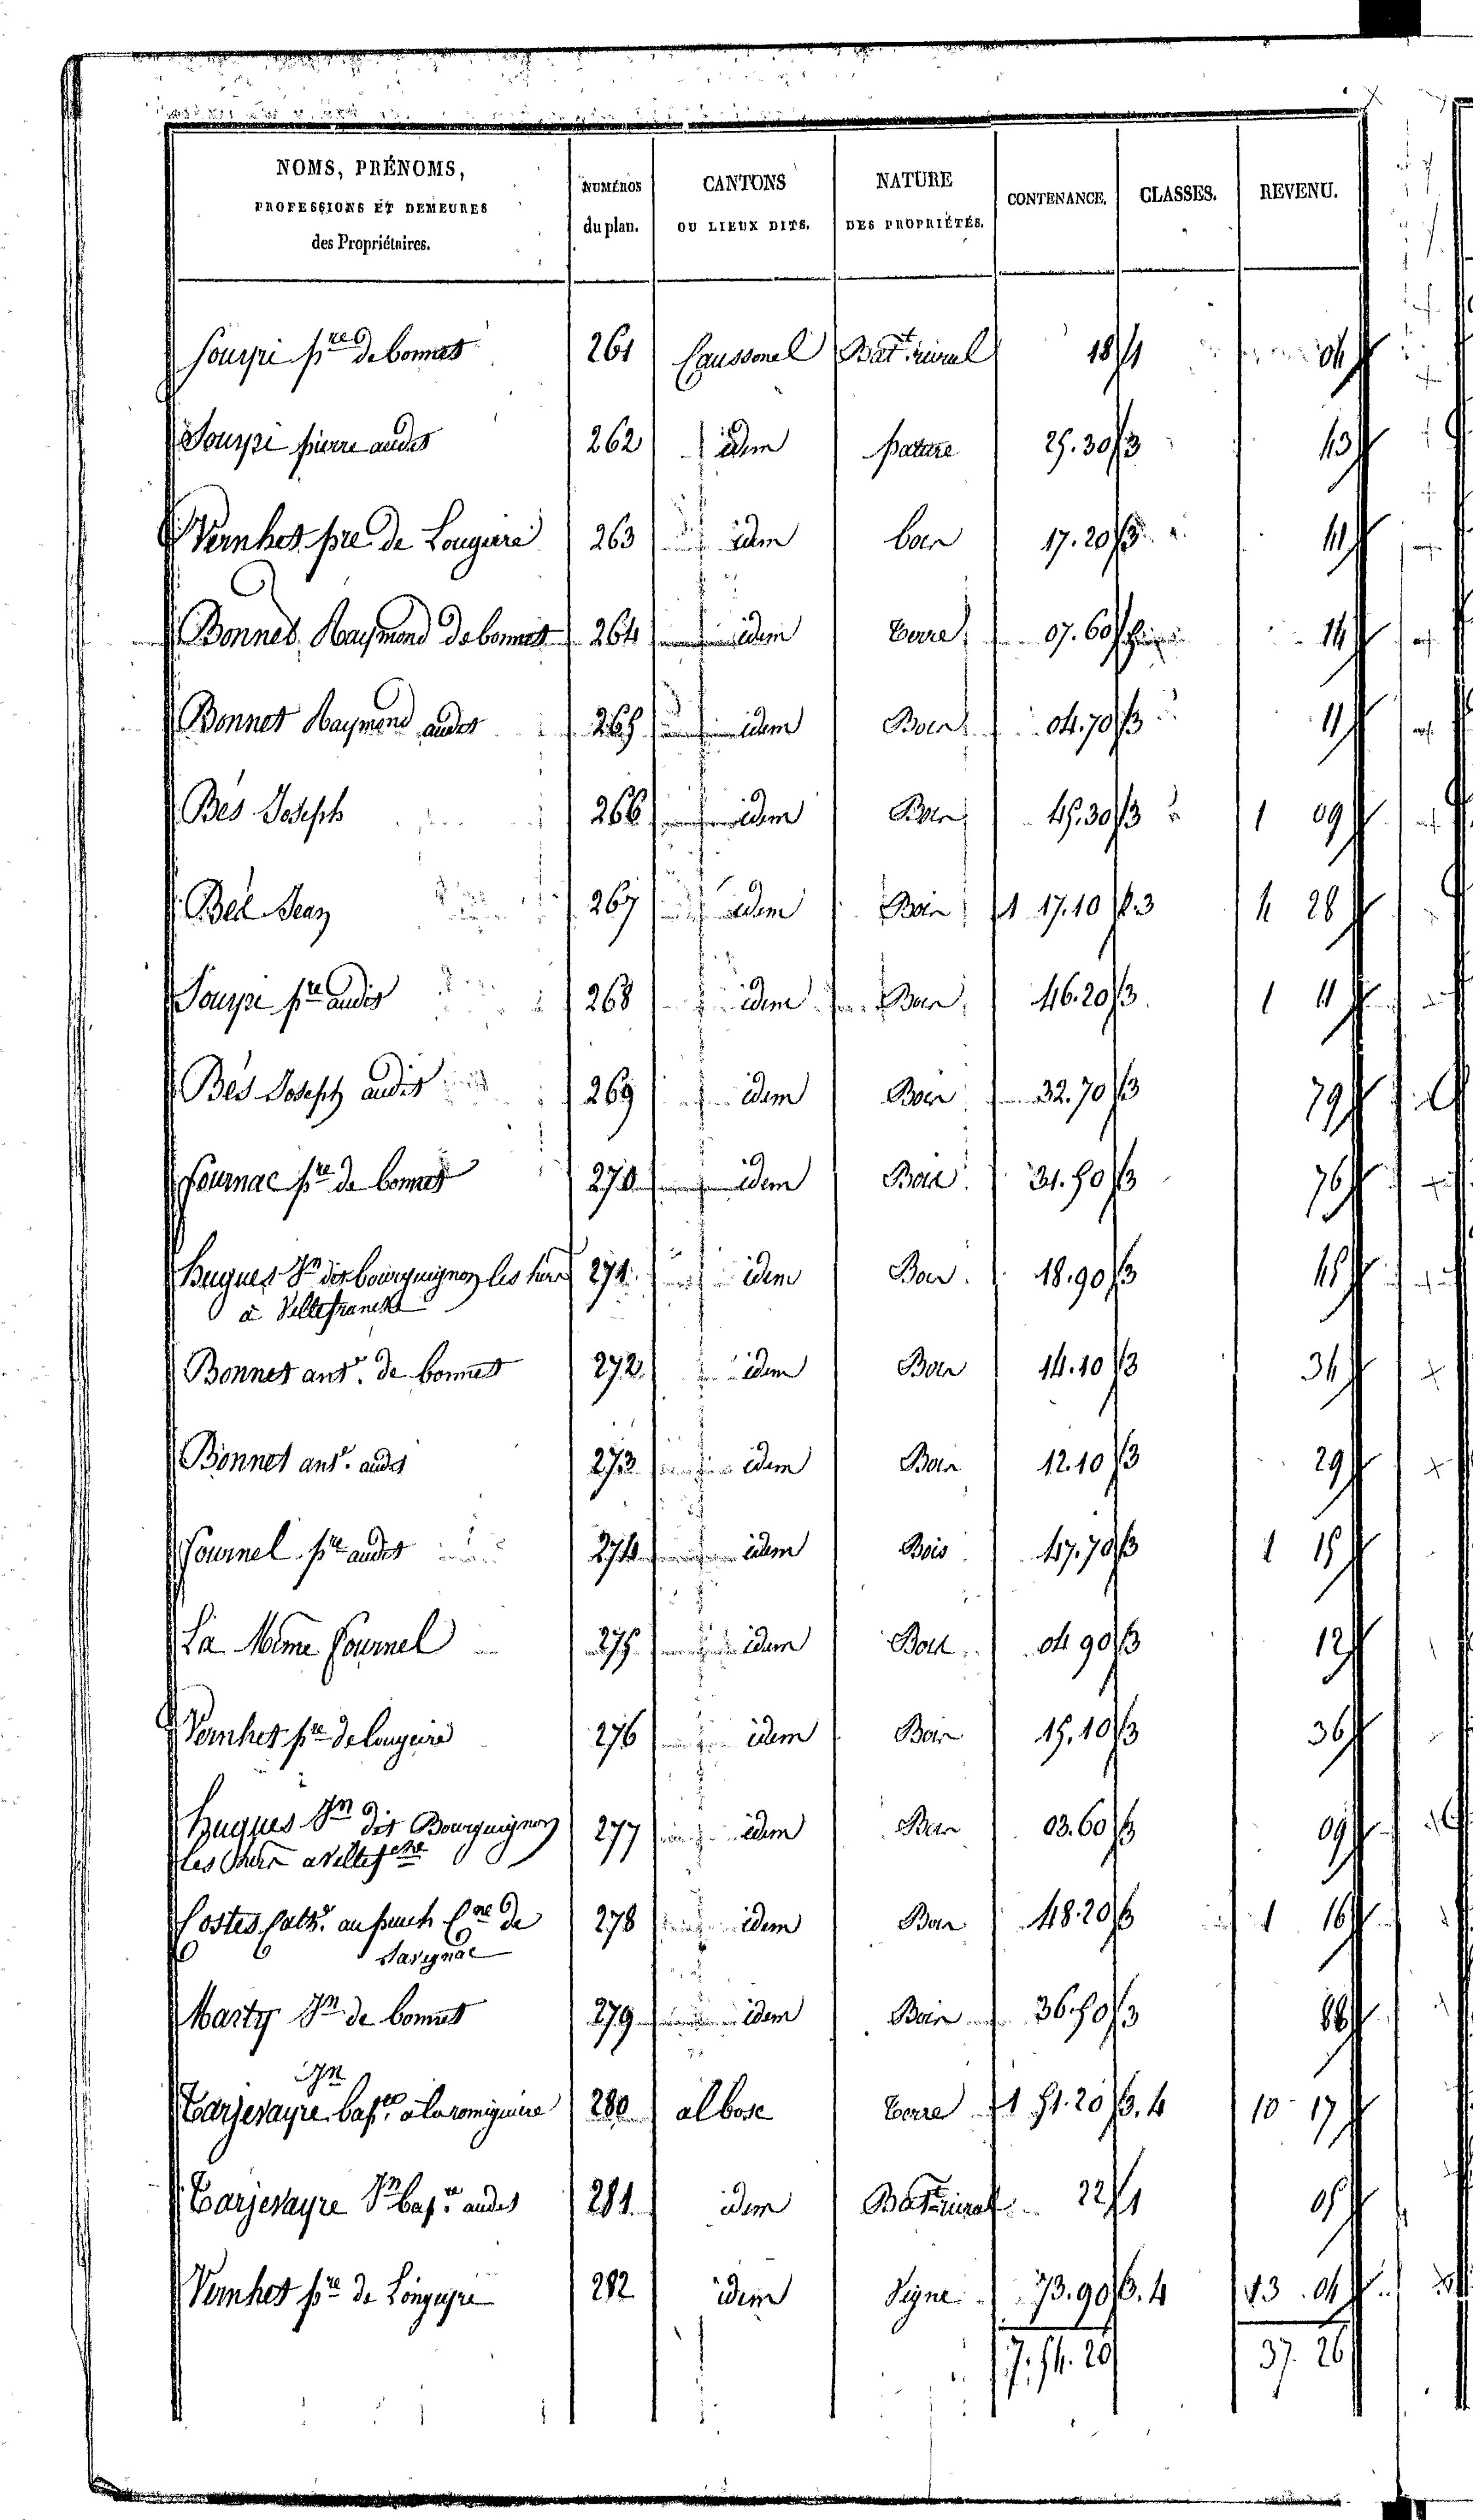 NOMS, PRÉNOMS, PROFESSIONS ET DEMEURES des Propriétaires. NUMÉROS du plan. CANTONS OU LIEUX DITS. NATURE DES PROPRIÉTÉS. CONTENANCE. CLASSES. REVENU.
pre de bonnet 261 Caussonel Batt rural 18 1 04
pierre audit 262 idem pature 25.30 3 13
Vernhet pre de 263 idem bois 17.20 3 41
Bonnet Raymond de bonnet 264 idem terre 07.60 14
Bonnet Raymond audit 265 idem Bois 04.70 3 11
Bés Joseph 266 idem Bois 45.30 3 1 09
Jean 267 idem Bois 1 17.10 2.3 4 28
pre audit 268 idem Bois 46.20 3 1 11
Bés Joseph audit 269 idem Bois 32.70 3 79
pre de bonnet 270 idem Bois 31.50 3 76
Hugues Jn dit bourguignon les 271 idem Bois 18.90 3 45
a Villefranche
Bonnet ante. de bonnet 272 idem Bois 14.10 3 34
Bonnet ante. audit 273 idem Bois 12.10 3 29
Fournel pre audit 274 idem Bois 47.70 3 1 15
La Même Fournel 275 idem Bois 04 90 3 12
Vernhet pre de 276 idem Bois 15.10 3 36
Hugues Jn dit Bourguignon 277 idem Bois 03.60 3 09
les a Villefche
Costes Cathe. au puech Cne de 278 idem Bois 48.20 3 1 16
Savignac
Marty Jn de bonnet 279 idem Bois 36.50 3 88
Jn
Tarjevayre bapte. à la romiguiere 280 al bosc terre 1 51.20 3.4 10 17
Tarjevayre Jn bapte. audit 281 idem Batt rural 22 1 05
Vernhet pre de 282 idem Vigne 73.90 3.4 13 04
7.54.20 37.26